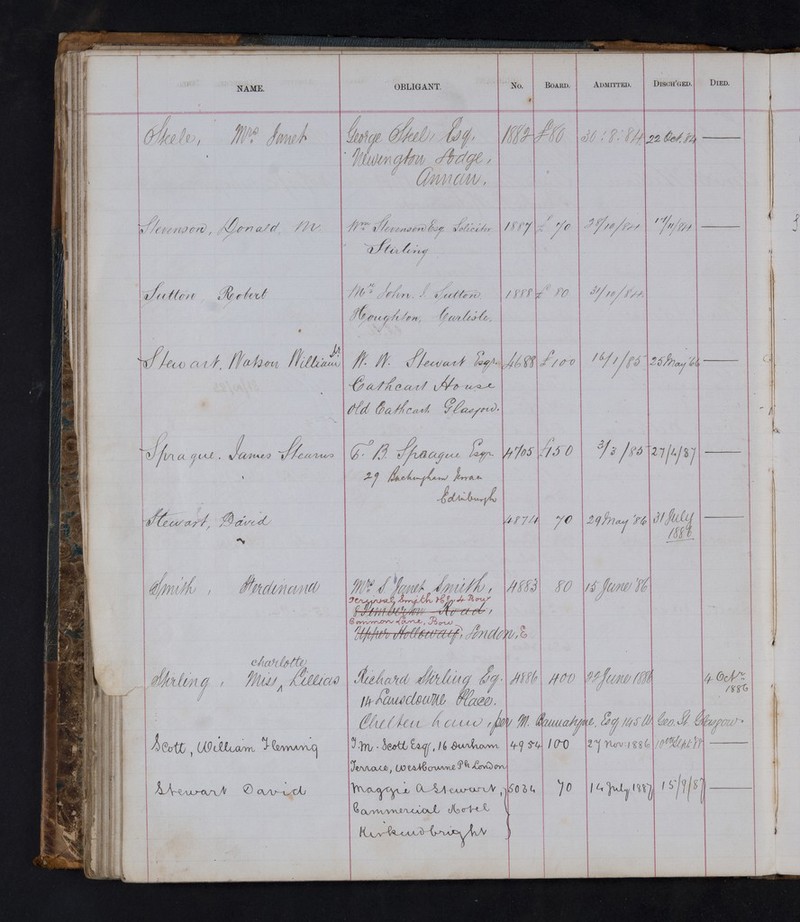 NAME. OBLIGANT. No. BOARD. ADMITTED. DISCH'GED. DIED.
Skele, Mrs Janet George Skele, Esq. 1882 £80 30:8:84 22 Oct. 84 —
Newington Lodge,
Annan.
Stevenson, Donald M Wm Stevenson Esq Solicitor 1887 £70 28/10/84 17/11/84 —
Stirling
Sutton Robert Mrs John. S. Sutton 1888 £80 31/10/84
Houghton, Carlisle.
Stewart, Watson William Jr W. W. Stewart Esqr 4688 £100 16/1/85 25 May '86 —
Cathcart House
Old Cathcart Glasgow.
Sprague. James Stearns F. B. Spraague Esqr 4705 £150 3/3/85 27/4/87 —
29 Buckingham Terrace
Edinburgh
Stewart, David 4874 70 29 May '86 31 July —
1886
Smith, Ferdinand Mrs S. Janet Smith, 4883 80 15 June '86
Percival Smith
Pemberton Road,
Common Lane, Bow
Upper Holloway, London, E
charlotte
Stirling, Miss ^ Lillias Richard Stirling Esq. 4886 400 22 June 1886 4 Octr
14 Lansdowne Place. 1886
Cheltenham, per M. Esq 145 W Geo. St Glasgow.
Scott, William Fleming J. M. Scott Esq, 16 Durham 4954 100 27 Nov 1886 —
Terrace, Westbourne Pk London
Stewart David Maggie A Stewart, 5034 70 14 July 1887 15/9/87 —
Commercial Hotel
Kirkcudbright